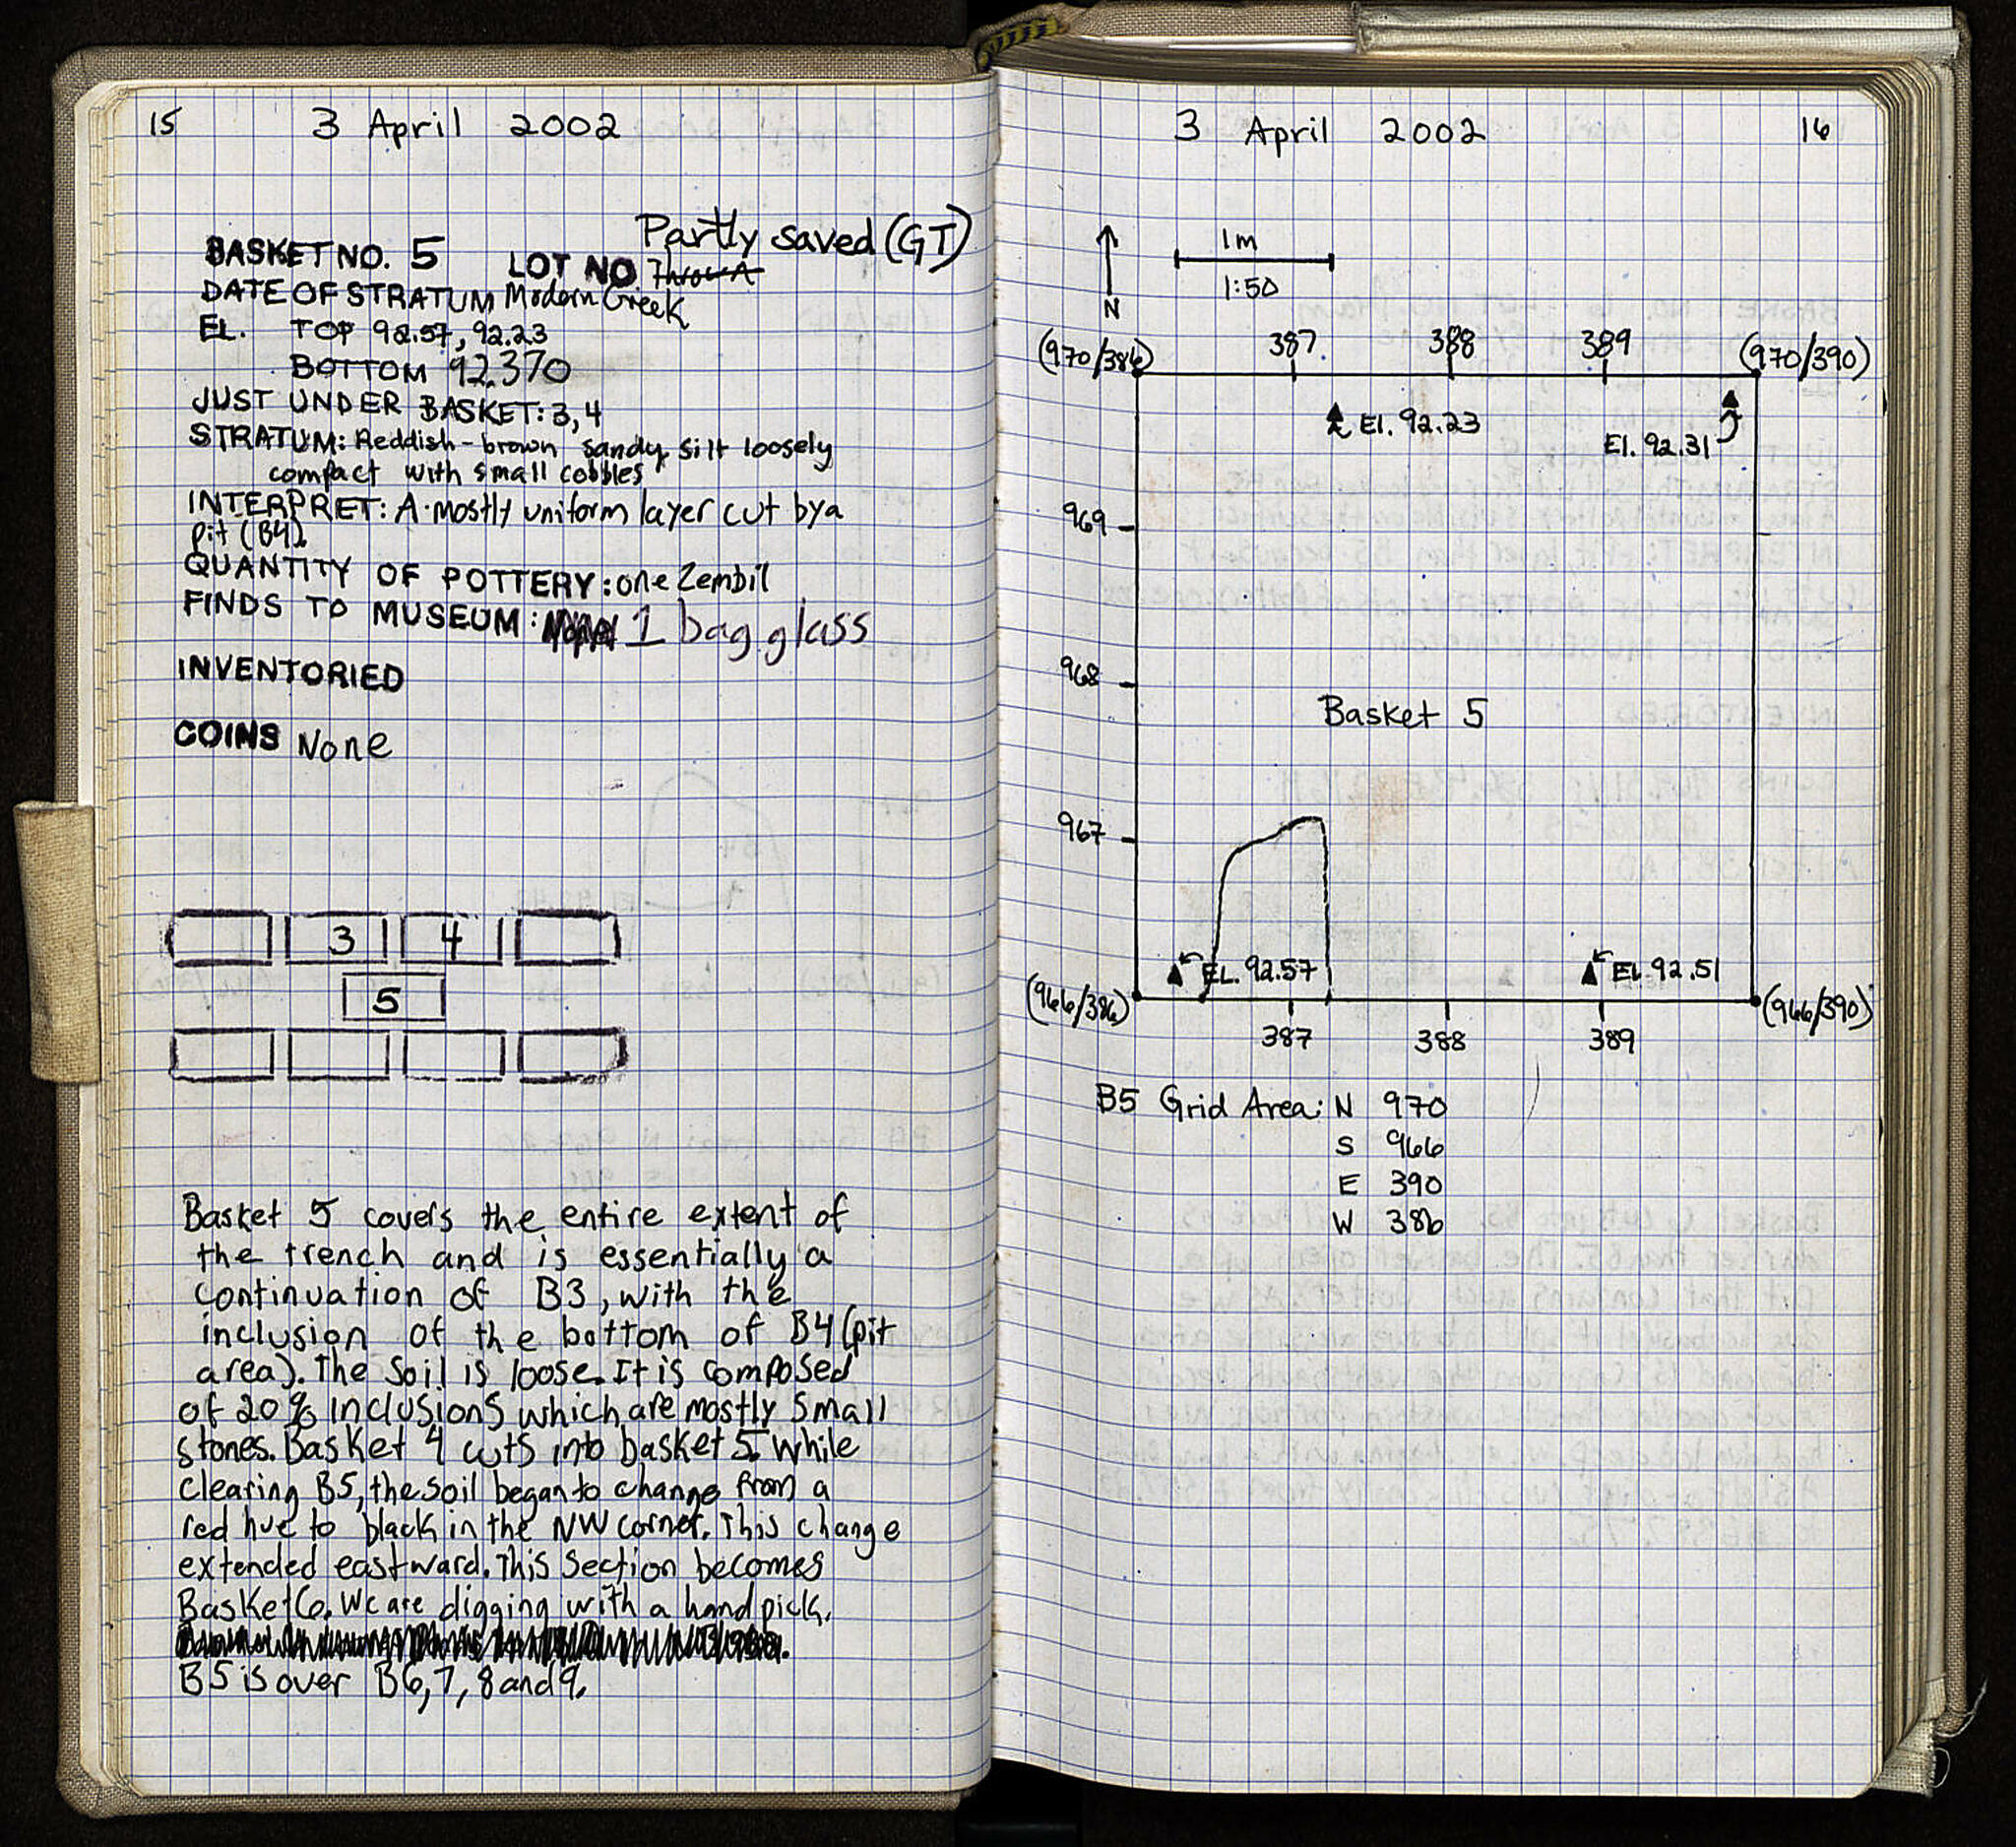 15 3 April 2002
Partly saved (GT)
BASKET NO. 5 LOT NO. Throw A
DATE OF STRATUM Modern Greek
EL. TOP 92.57, 92.23
BOTTOM 92.370
JUST UNDER BASKET: 3, 4
STRATUM: Reddish-brown sandy silt loosely
compact with small cobbles
INTERPRET: A mostly uniform layer cut by a
pit (B4).
QUANTITY OF POTTERY: one Zembil
FINDS TO MUSEUM: 1 bag glass
INVENTORIED
COINS None
3 4
5
Basket 5 covers the entire extent of
the trench and is essentially a
continuation of B3, with the
inclusion of the bottom of B4 (pit
area). The soil is loose. It is composed
of 20% inclusions which are mostly small
stones. Basket 4 cuts into basket 5. While
clearing B5, the soil began to change from a
red hue to black in the NW corner. This change
extended eastward. This section becomes
Basket 6. We are digging with a handpick.
B5 is over B6, 7, 8 and 9.
3 April 2002 16
1m
1:50
N
(970/386) 387 388 389 (970/390)
El. 92.23
El. 92.31
969
968
Basket 5
967
EL. 92.57 EL 92.51
(966/386) (966/390)
387 388 389
B5 Grid Area: N 970
S 966
E 390
W 386